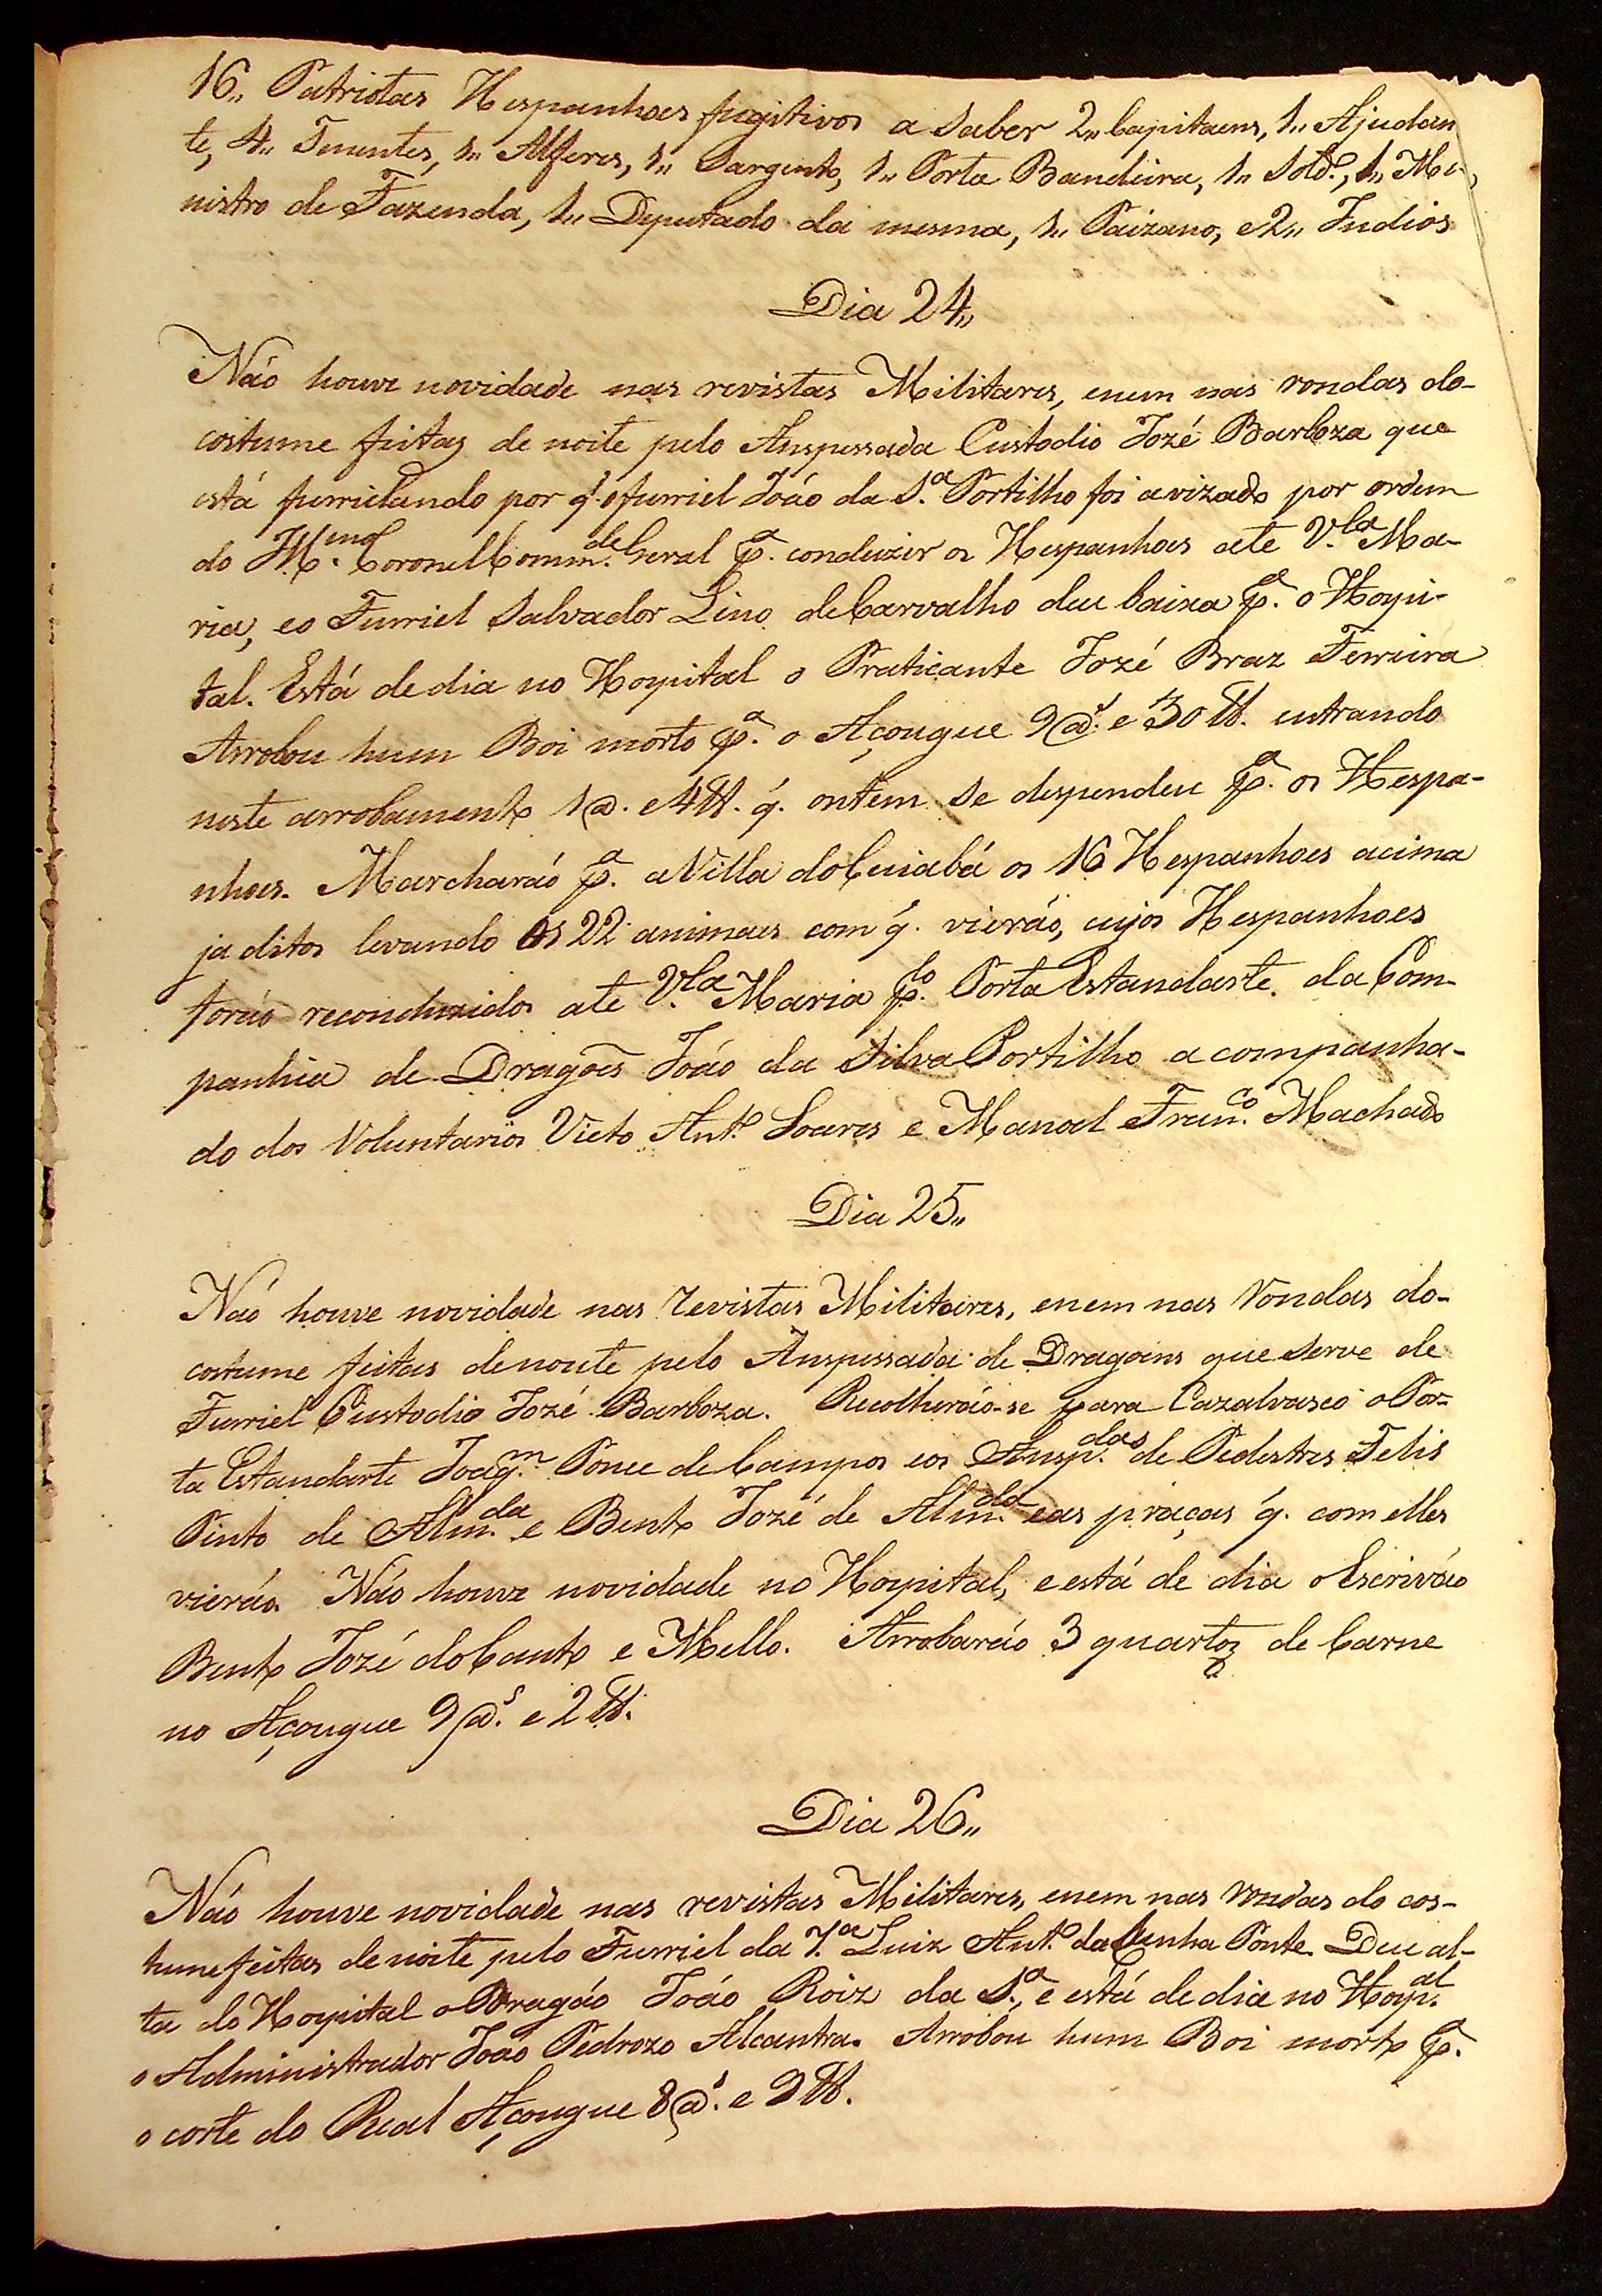 16,, Patriotas Hespanhoes fugitivos a saber 2,, Capitaens, 1,, Ajudan
te, 4,, Tenentes, 1,, Alferes, 1,, Sargento, 1,, Porta Bandeira, 1,, Sold.º, 1,, Mi-
nistro de Fazenda, 1,, Deputado da mesma, 1,, Paizano, e 2,, Indios
Dia 24,,
Não houve novidade nas revistas Militares, enem nas rondas do-
costume feitas de noite pelo Anspessada Custodio Jozé Barboza que
está furrielando por q' o furriel João da S.ª Portilho foi avizado por ordem
do Ill.mo Coronel Comm.de Geral p.ª conduzir os Hespanhoes ate V.la Ma-
ria, eo Furriel Salvador Lino de Carvalho deu baixa p.ª o Hospi-
tal. Está de dia no Hospital o Praticante Jozé Braz Ferreira
Arrobou hum Boi morto p.ª o Açougue 9@.s e 30 lb. entrando
neste arrobamento 1@. e 4 lb. q'. ontem se despendeu p.ª os Hespa-
nhoes. Marcharão p.ª a Villa do Cuiabá os 16 Hespanhoes acima
ja ditos levando os 22 animaes com q'. vierão, cujos Hespanhoes
forão reconduzidos ate V.la Maria p.lo Porta Estandarte da Com-
panhia de Dragoẽs João da Silva Portilho acompanha-
do dos Voluntarios Victo Ant.º Soares e Manoel Fran.co Machado
Dia 25,,
Não houve novidade nas revistas Militares, enem nas rondas do-
costume feitas de noute pelo Anspessada de Dragoins que serve de
Furriel Custodio Jozé Barboza. Recolherão-se para Cazalvasco o Por-
ta Estandarte Joaq.m Ponce de Campos eos Ansp.das de Pedestres Felis
Pinto de Alm.da e Bento Jozé de Alm.da eas praças q'. com elles
vierão. Não houve novidade no Hospital, e está de dia o Escrivão
Bento Jozé do Canto e Mello. Arrobarão 3 quartos de Carne
no Açougue 9@.s e 2 lb.
Dia 26,,
Não houve novidade nas revistas Militares, enem nas rondas do cos-
tume feitas de noite pelo Furriel da 7.ª Luiz Ant.º da Cunha Ponte. Deu al-
ta do Hospital o Dragão João Roiz da S.ª, e está de dia no Hosp.al
o Administrador João Pedrozo Alcantra. Arrobou hum Boi morto p.ª
o corte do Real Açougue 8@.s e 9 lb.